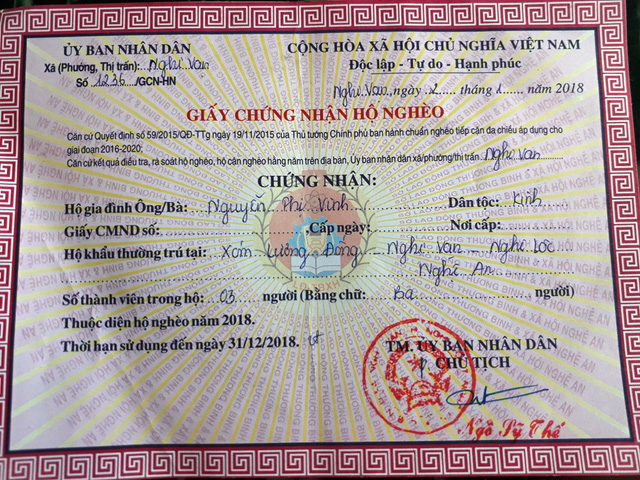 ỦY BAN NHÂN DÂN
Xã (Phường, Thị trấn): Nghi Vạn
Số 1236/GCN-HN
CỘNG HÒA XÃ HỘI CHỦ NGHĨA VIỆT NAM
Độc lập - Tự do - Hạnh phúc
Nghi Vạn, ngày 2 tháng 1 năm 2018
GIẤY CHỨNG NHẬN HỘ NGHÈO
Căn cứ Quyết định số 59/2015/QĐ-TTg ngày 19/11/2015 của Thủ tướng Chính phủ ban hành chuẩn nghèo tiếp cận đa chiều áp dụng cho
giai đoạn 2016-2020;
Căn cứ kết quả điều tra, rà soát hộ nghèo, hộ cận nghèo hằng năm trên địa bàn, Ủy ban nhân dân xã/phường/thị trấn Nghi Vạn
CHỨNG NHẬN:
Hộ gia đình Ông/Bà: Nguyễn Phi Vinh Dân tộc: Kinh
Giấy CMND số: Cấp ngày: Nơi cấp:
Hộ khẩu thường trú tại: Xóm Đồng Nghi Vạn Nghi Lộc
Nghệ An
Số thành viên trong hộ: 03 người (Bằng chữ: Ba người)
Thuộc diện hộ nghèo năm 2018.
Thời hạn sử dụng đến ngày 31/12/2018.
TM. ỦY BAN NHÂN DÂN
CHỦ TỊCH
Ngô Sỹ Thế